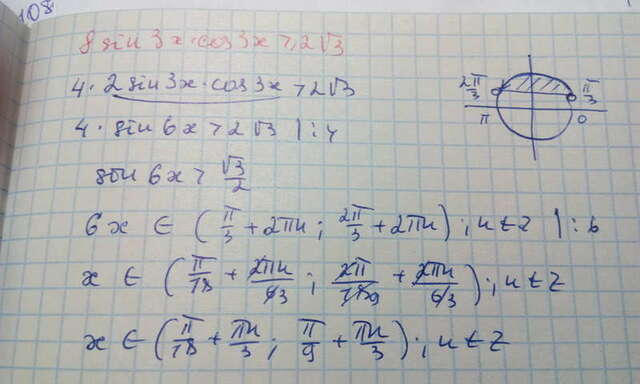 108.
8 sin 3x · cos 3x > 2√3
4 · 2 sin 3x · cos 3x > 2√3
4 · sin 6x > 2√3 | : 4
sin 6x > √3/2
6x ∈ (π/3 + 2πn ; 2π/3 + 2πn) ; n ∈ Z | : 6
x ∈ (π/18 + 2πn/63 ; 2π/189 + 2πn/63) ; n ∈ Z
x ∈ (π/18 + πn/3 ; π/9 + πn/3) ; n ∈ Z
2π/3
π/3
π
0